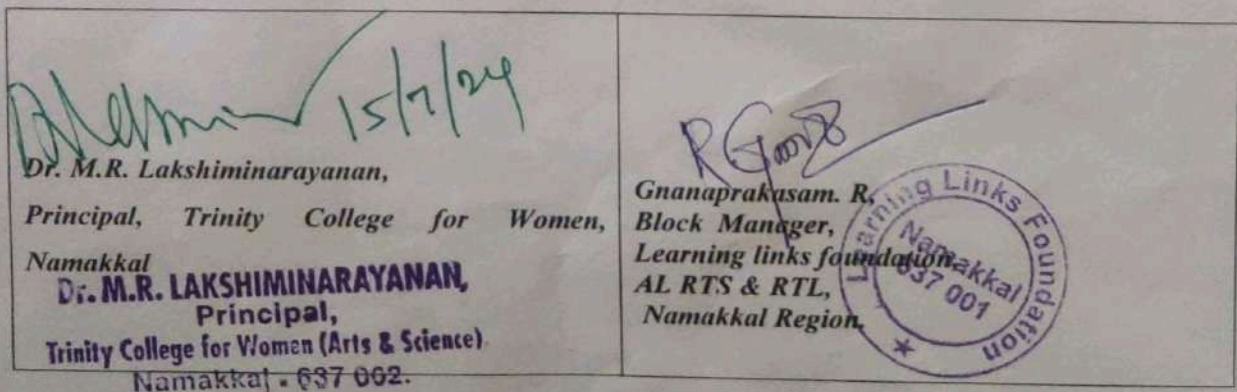 15/7/24
Dr. M.R. Lakshiminarayanan,
Principal, Trinity College for Women,
Namakkal
Dr. M.R. LAKSHIMINARAYANAN,
Principal,
Trinity College for Women (Arts & Science)
Namakkal - 637 002.
Gnanaprakasam. R,
Block Manager,
Learning links foundation,
AL RTS & RTL,
Namakkal Region.
Learning Links Foundation
Namakkal
637 001